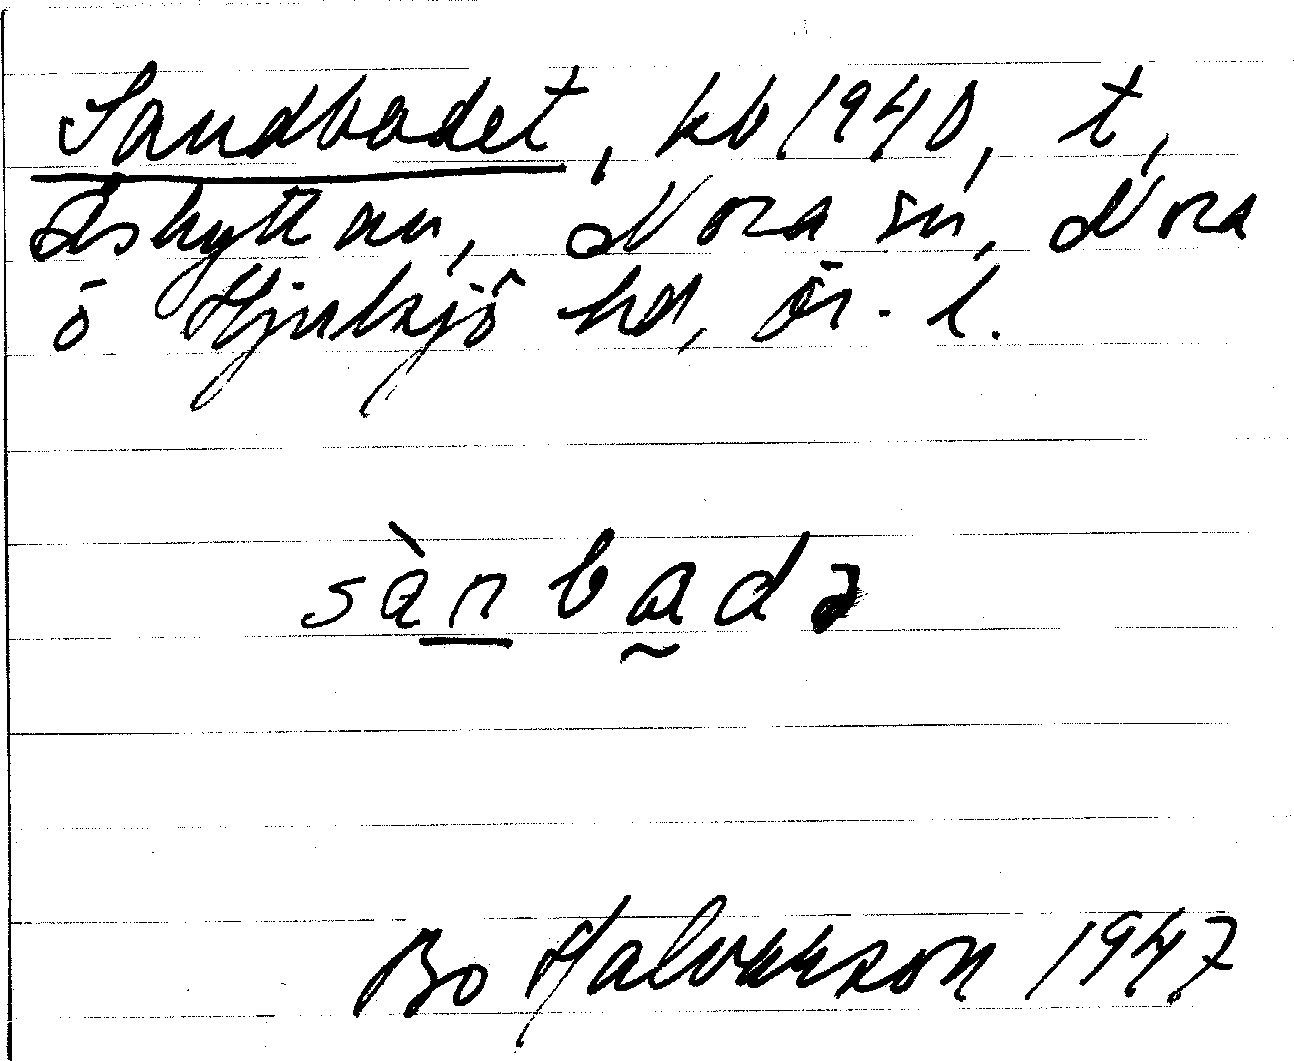 Sandbadet, kb 1940, t,
Åshyttan, Nora sn, Nora
o Hjulsjö hd, Ör. l.
sànbadə
Bo Halvarson 1947